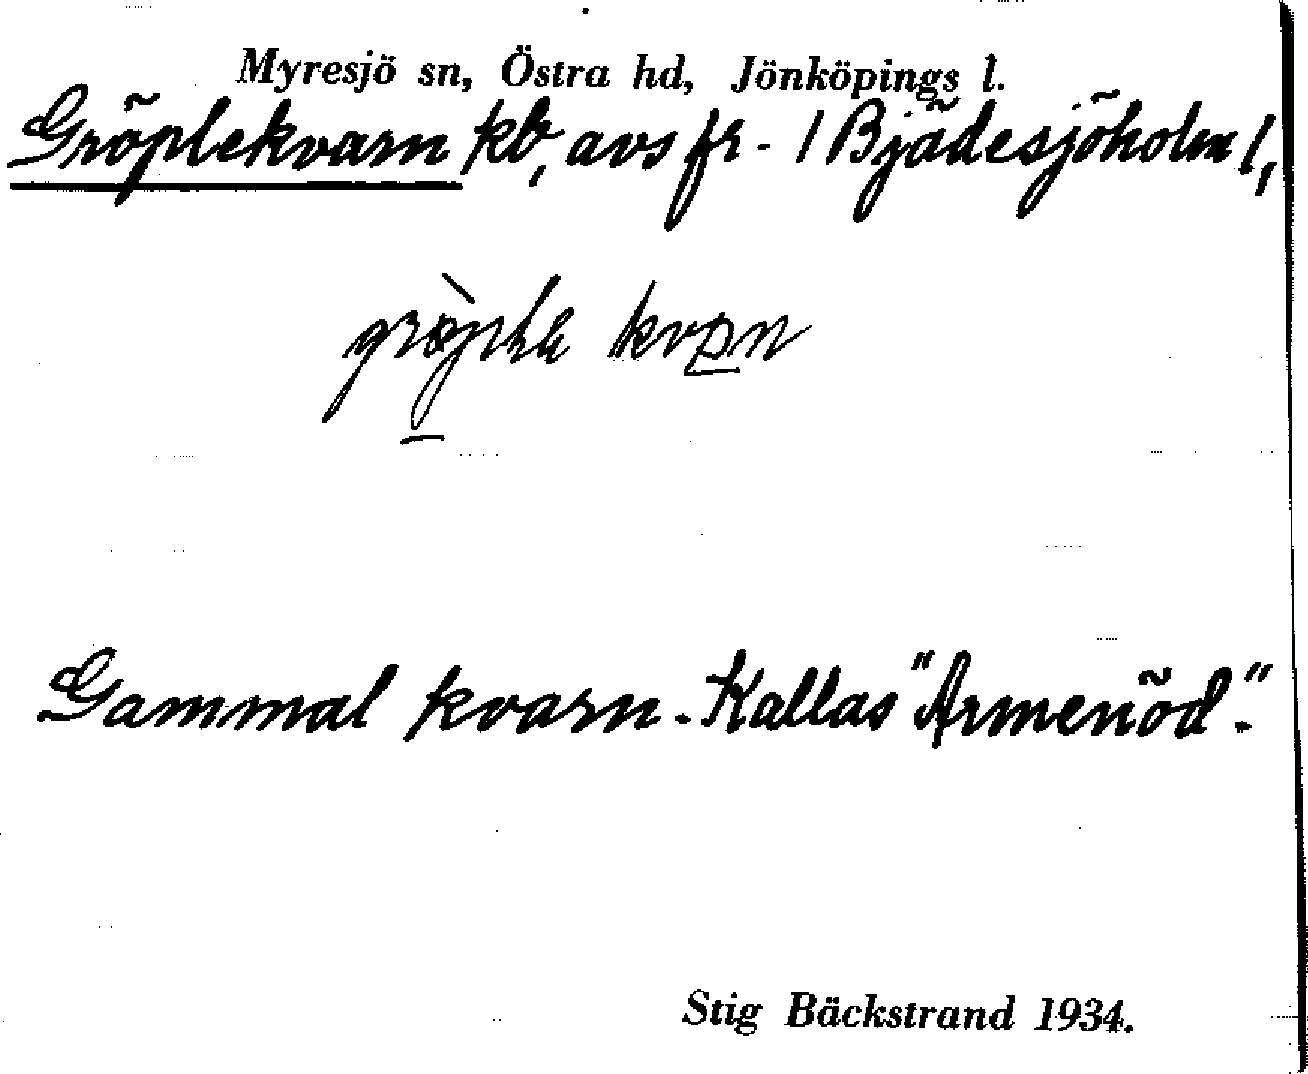 Myresjö sn, Östra hd, Jönköpings l.
Gröplekvarn kb, avs fr. /Bjädesjöholm/,
kvan
Gammal kvarn. Kallas "Armenöd".
Stig Bäckstrand 1934.